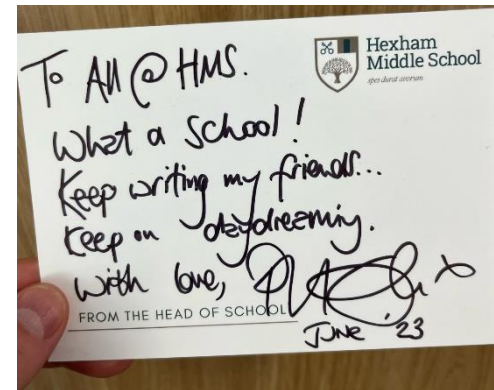 Hexham
Middle School
spes durat avorum
To All @ HMS.
What a school!
Keep writing my friends...
Keep on daydreaming.
With love,
FROM THE HEAD OF SCHOOL
JUNE 23